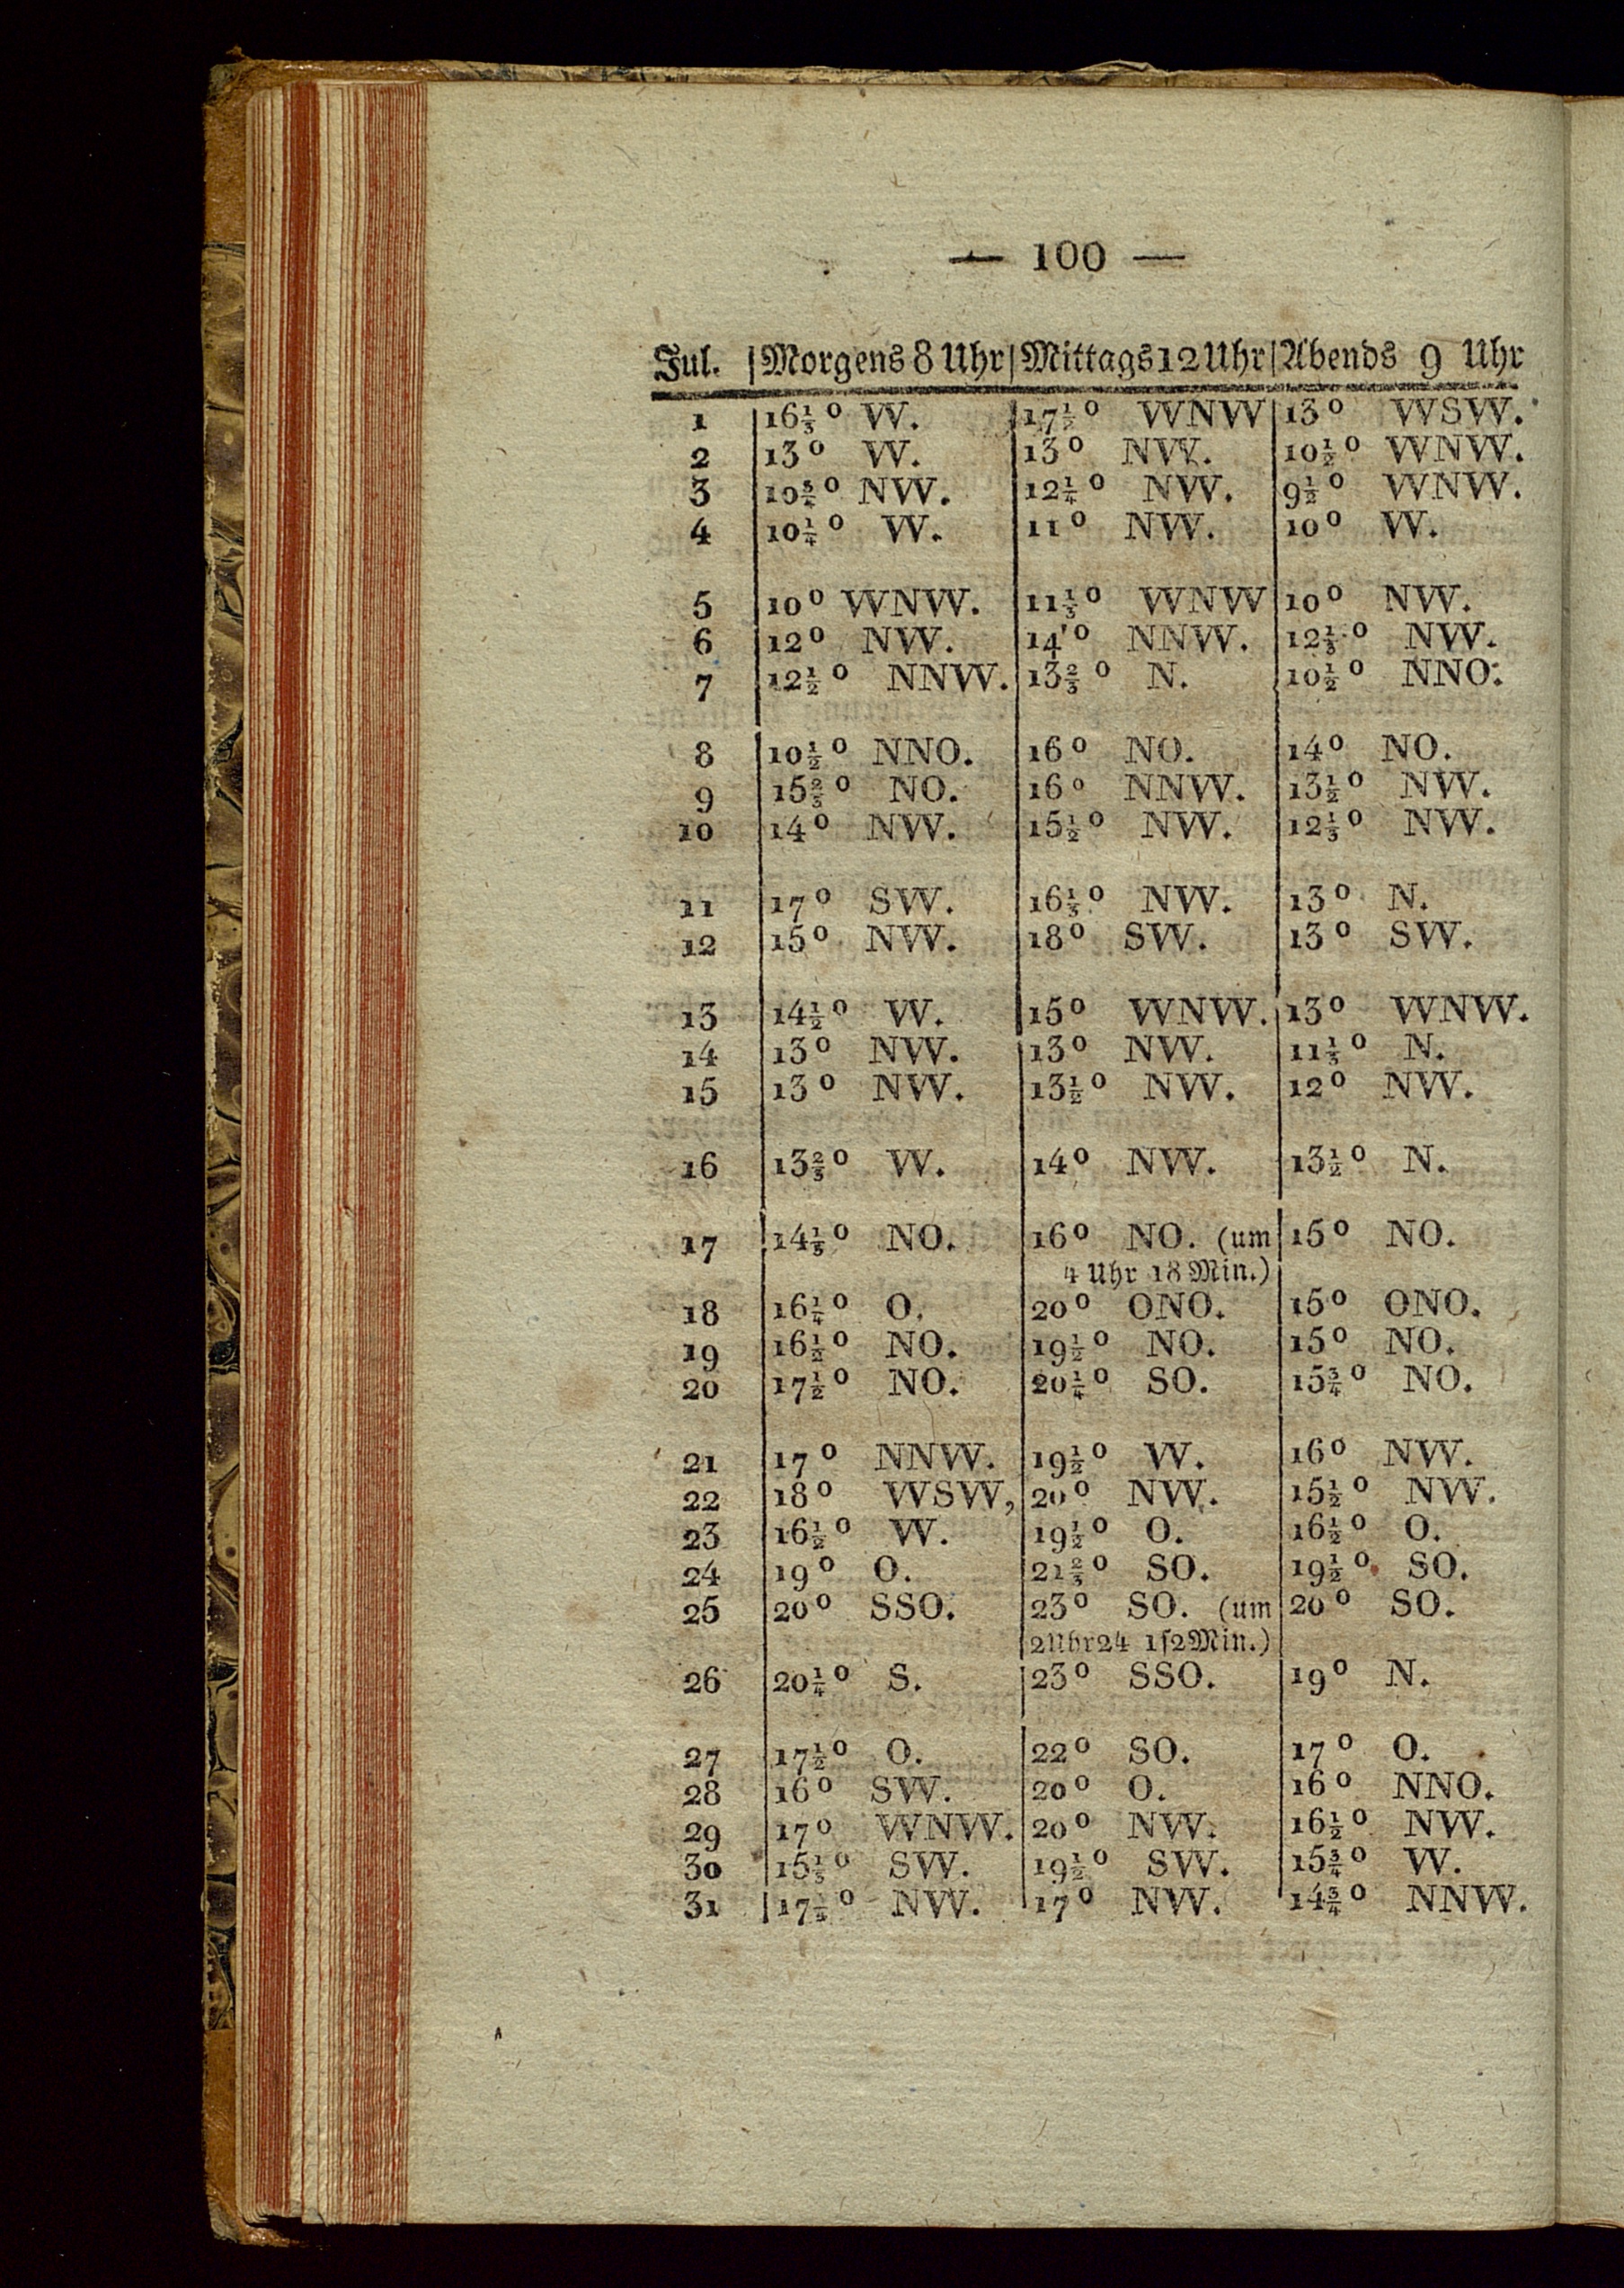 — 100 —
Jul. | Morgens 8 Uhr | Mittags 12 Uhr | Abends 9 Uhr
1 | 16⅓° W. | 17½° WNW | 13° WSW.
2 | 13° W. | 13° NW. | 10½° WNW.
3 | 10¾° NW. | 12¼° NW. | 9½° WNW.
4 | 10¼° W. | 11° NW. | 10° W.
5 | 10° WNW. | 11⅓° WNW | 10° NW.
6 | 12° NW. | 14° NNW. | 12⅓° NW.
7 | 12½° NNW. | 13⅔° N. | 10½° NNO.
8 | 10½° NNO. | 16° NO. | 14° NO.
9 | 15⅔° NO. | 16° NNW. | 13½° NW.
10 | 14° NW. | 15½° NW. | 12⅓° NW.
11 | 17° SW. | 16⅓° NW. | 13° N.
12 | 15° NW. | 18° SW. | 13° SW.
13 | 14½° W. | 15° WNW. | 13° WNW.
14 | 13° NW. | 13° NW. | 11⅓° N.
15 | 13° NW. | 13½° NW. | 12° NW.
16 | 13⅔° W. | 14° NW. | 13½° N.
17 | 14⅓° NO. | 16° NO. (um | 15° NO.
4 Uhr 18 Min.)
18 | 16¼° O. | 20° ONO. | 15° ONO.
19 | 16½° NO. | 19½° NO. | 15° NO.
20 | 17½° NO. | 20¼° SO. | 15¾° NO.
21 | 17° NNW. | 19½° W. | 16° NW.
22 | 18° WSW, | 20° NW. | 15½° NW.
23 | 16½° W. | 19½° O. | 16½° O.
24 | 19° O. | 21⅔° SO. | 19½° SO.
25 | 20° SSO. | 23° SO. (um | 20° SO.
2Uhr24 1/2Min.)
26 | 20¼° S. | 23° SSO. | 19° N.
27 | 17½° O. | 22° SO. | 17° O.
28 | 16° SW. | 20° O. | 16° NNO.
29 | 17° WNW. | 20° NW. | 16½° NW.
30 | 15⅓° SW. | 19½° SW. | 15¾° W.
31 | 17¼° NW. | 17° NW. | 14¾° NNW.